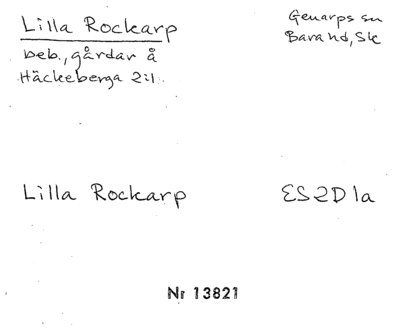 Lilla Rockarp
beb., gårdar å
Häckeberga 2:1.
Genarps sn
Bara hd, Sk
Lilla Rockarp
ES2D1a
Nr 13821